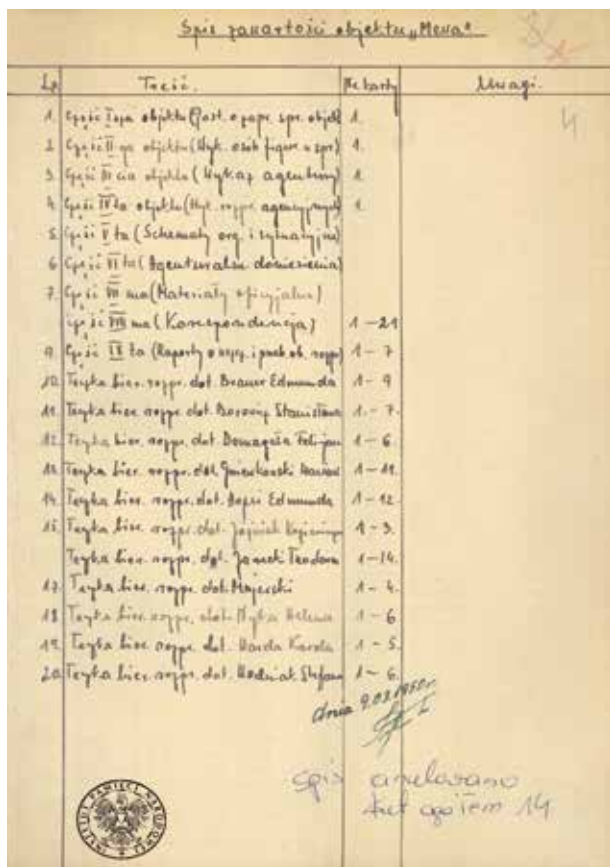 Spis zawartości objektu „Mewa”
Lp. Treść. Nr karty Uwagi.
4
1. Część I sza objektu (Post. o 1.
2. Część II ga objektu (Wyk. osób figur. w spr) 1.
3. Część III cia objektu (Wykaz agentury) 1.
4. Część IV ta objektu (Wyk. rozpr. agencyjnych) 1.
5. Część V ta (Schematy org. i sytuacyjne)
6. Część VI ta (Agenturalne doniesienia)
7. Część VII ma (Materiały oficyjalne)
Część VIII ma (Korespondencja) 1-21
9. Część IX ta (Raporty o 1-7
10. Teczka bier. rozpr. dot. Brauer Edmunda 1-9
11. Teczka bier. rozpr. dot. Stanisława 1-7.
12. Teczka bier. rozpr. dot. Domagała 1-6.
13. Teczka bier. rozpr. dot. 1-11.
14. Teczka bier. rozpr. dot. Edmunda 1-12
15. Teczka bier. rozpr. dot. 1-3.
Teczka bier. rozpr. dot. Teodora 1-14.
17. Teczka bier. rozpr. dot. Majerski 1-4.
18 Teczka bier. rozpr. dot. Helena 1-6
19. Teczka bier. rozpr. dot. Karola 1-5.
20. Teczka bier. rozpr. dot. Stefana 1-6.
dnia 9.03.1950r.
spis anulowano
kart ogółem 14
INSTYTUT PAMIĘCI NARODOWEJ